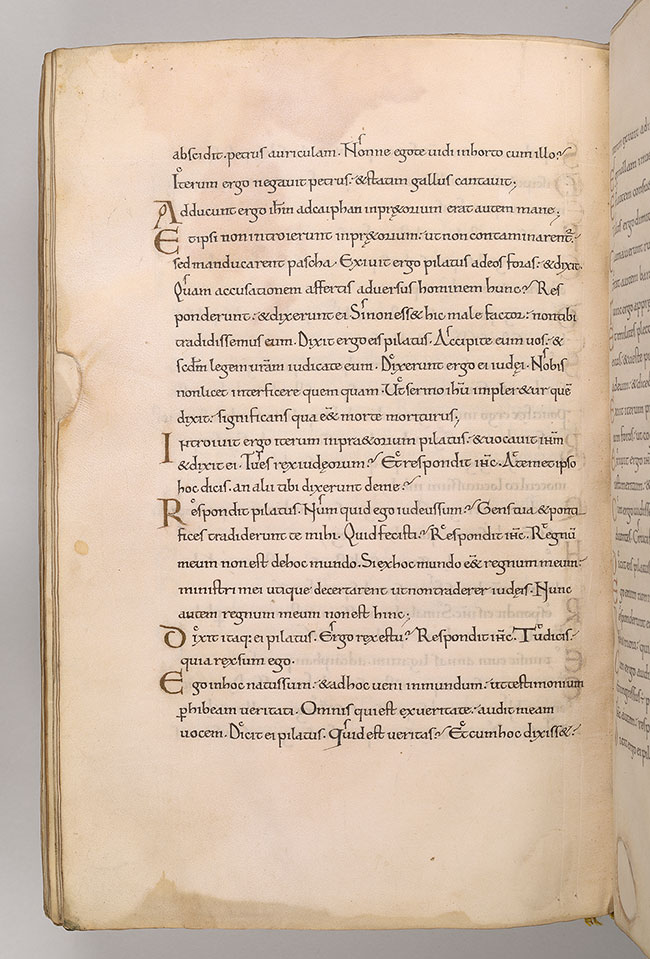 abscidit. petrus auriculam. Nonne ego te vidi in horto cum illo?
Iterum ergo negavit petrus: & statim gallus cantavit;
Adducunt ergo ihm ad caiphan in pr&orium erat autem mane;
Et ipsi non introierunt in pr&orium: ut non contaminarent~.
sed manducarent pascha. Exivit ergo pilatus ad eos foras: & dixit.
Quam accusationem affertis adversus hominem hunc? Res
ponderunt: & dixerunt ei Si non ess& hic male factor: non tibi
tradidissemus eum. Dixit ergo eis pilatus. Accipite eum vos: &
scdm legem vram iudicate eum. Dixerunt ergo ei iudęi. Nobis
non licet interficere quem quam. Ut sermo ihu impler&ur quē
dixit: significans qua eē& morte morturus;
Introivit ergo iterum in pr&orium pilatus: & vocavit ihm
& dixit ei. Tu es rex iudęorum? Et respondit ihc. A temet ipso
hoc dicis. an alii tibi dixerunt de me?
Respondit pilatus. Num quid ego iudeus sum? Gens tua & ponti
fices tradiderunt te mihi. Quid fecisti? Respondit ihc. Regnū
meum non est de hoc mundo. Si ex hoc mundo eē& regnum meum:
ministri mei utique decertarent ut non traderer iudęis. Nunc
autem regnum meum non est hinc;
Dixit itaq: ei pilatus. Ergo rex es tu? Respondit ihc. Tu dicis.
quia rex sum ego.
Ego in hoc natus sum: & ad hoc veni in mundum: ut testimonium
phibeam veritati. Omnis qui est ex veritate: audit meam
vocem. Dicit ei pilatus. Quid est veritas? Et cum hoc dixiss&: